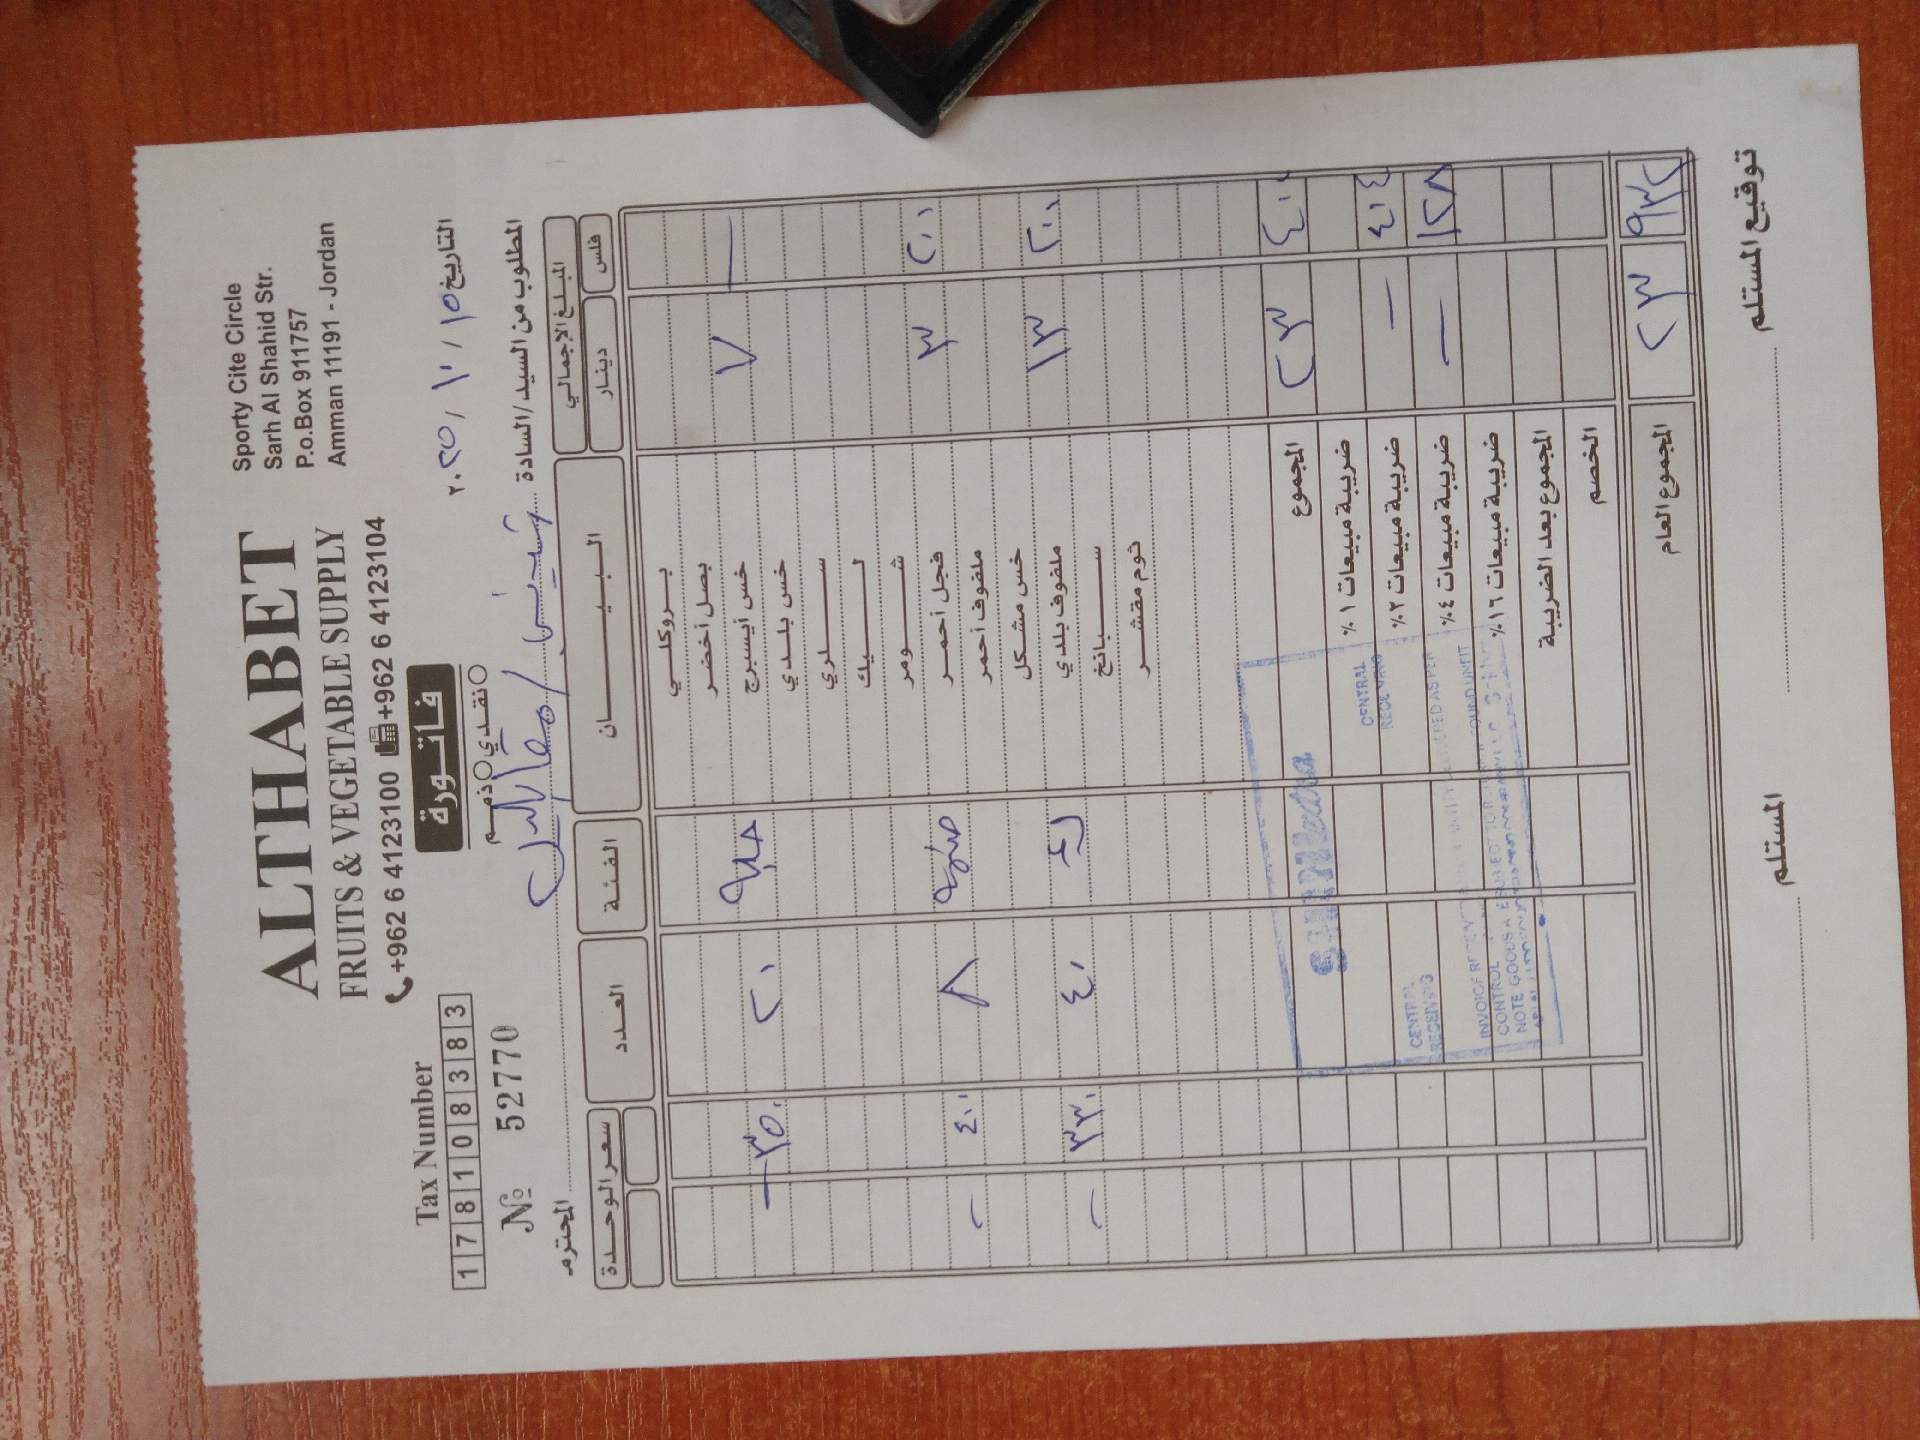 ALTHABET
FRUITS & VEGETABLE SUPPLY
+962 6 4123100 +962 6 4123104
Sporty Cite Circle
Sarh Al Shahid Str.
P.o.Box 911757
Amman 11191 - Jordan
Tax Number
178108383
№ 52770
فاتورة
ذمم نقدي
التاريخ ١٥ / ١٠ / ٢٠٢٥
المطلوب من السيد/السادة
المحترم
المبلغ الإجمالي البيان الفئة العدد سعر الوحدة
فلس دينار
بروكلي
بصل أخضر
— ٧ خس أيسبرج حبة ٢٠ ٣٥٠ —
خس بلدي
سلري
ليك
شومر
٢٠٠ ٣ فجل أحمر ٨ ٤٠٠ —
ملفوف أحمر
خس مشكل
٢٠٠ ١٣ ملفوف بلدي ٤٠ ٣٣٠ —
سبانخ
ثوم مقشر
٤٠٠ ٢٣ المجموع
ضريبة مبيعات ١٪
٤٠٤ — ضريبة مبيعات ٢٪
١٢٨ — ضريبة مبيعات ٤٪
ضريبة مبيعات ١٦٪
المجموع بعد الضريبة
الخصم
٩٣٢ ٢٣ المجموع العام
CENTRAL
RECEIVING
CENTRAL
RECEIVING
المستلم
توقيع المستلم